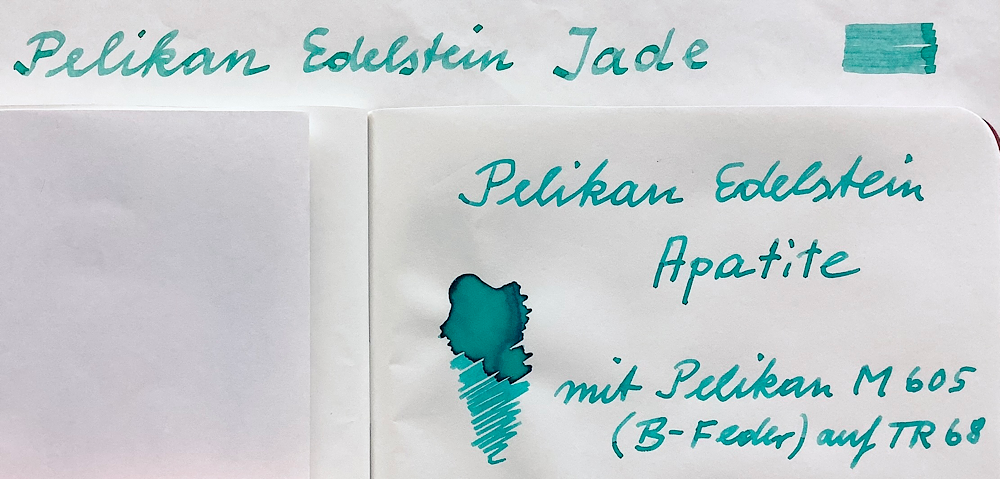 Pelikan Edelstein Jade
Pelikan Edelstein
Apatite
mit Pelikan M605
(B-Feder) auf TR68